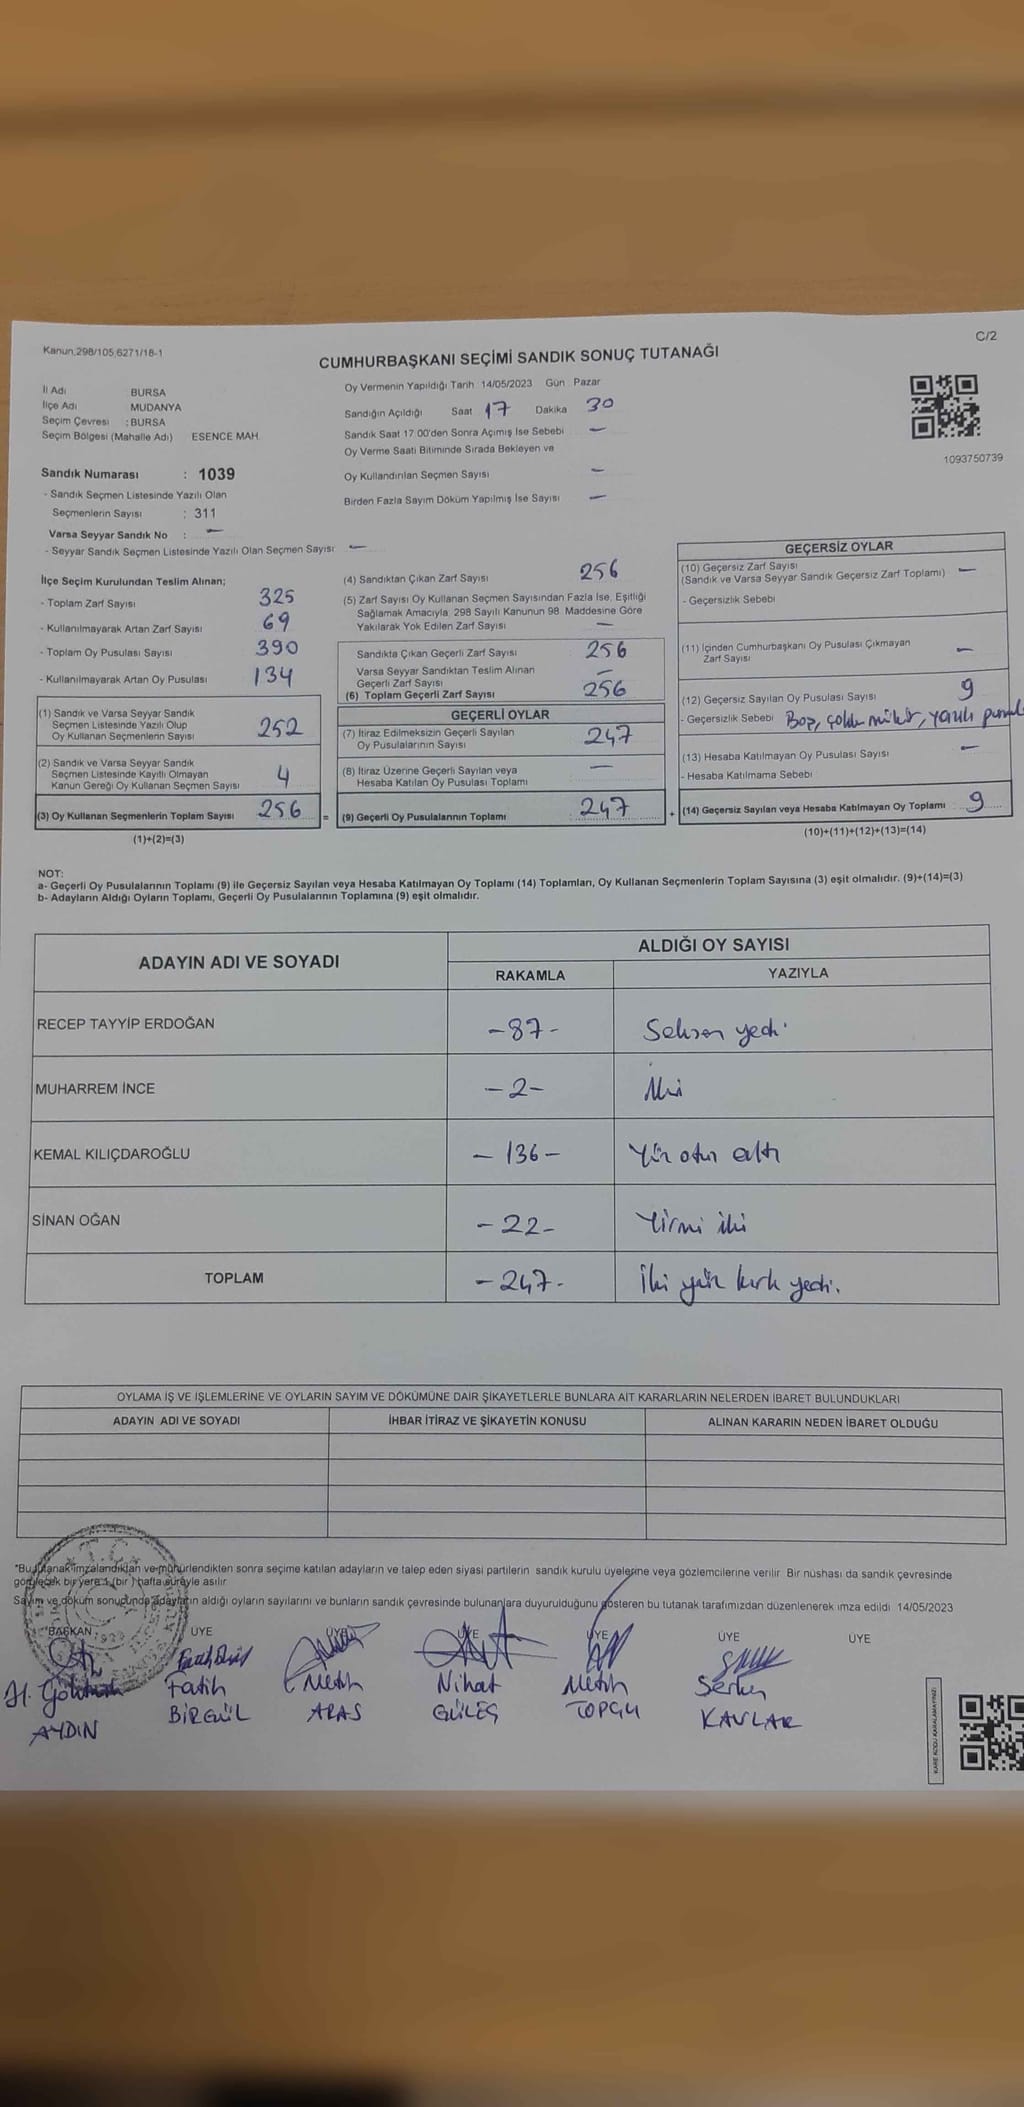 Kanun,298/105,6271/18-1
C/2
CUMHURBAŞKANI SEÇİMİ SANDIK SONUÇ TUTANAĞI
İl Adı BURSA
İlçe Adı MUDANYA
Seçim Çevresi : BURSA
Seçim Bölgesi (Mahalle Adı) ESENCE MAH.
Oy Vermenin Yapıldığı Tarih 14/05/2023 Gün Pazar
Sandığın Açıldığı Saat 17 Dakika 30
Sandık Saat 17:00'den Sonra Açımış İse Sebebi –
Oy Verme Saati Bitiminde Sırada Bekleyen ve
Oy Kullandırılan Seçmen Sayısı –
Birden Fazla Sayım Döküm Yapılmış İse Sayısı –
1093750739
Sandık Numarası : 1039
- Sandık Seçmen Listesinde Yazılı Olan
Seçmenlerin Sayısı : 311
Varsa Seyyar Sandık No : –
- Seyyar Sandık Seçmen Listesinde Yazılı Olan Seçmen Sayısı: –
İlçe Seçim Kurulundan Teslim Alınan;
- Toplam Zarf Sayısı 325
- Kullanılmayarak Artan Zarf Sayısı 69
- Toplam Oy Pusulası Sayısı 390
- Kullanılmayarak Artan Oy Pusulası 134
(1) Sandık ve Varsa Seyyar Sandık
Seçmen Listesinde Yazılı Olup
Oy Kullanan Seçmenlerin Sayısı 252
(2) Sandık ve Varsa Seyyar Sandık
Seçmen Listesinde Kayıtlı Olmayan
Kanun Gereği Oy Kullanan Seçmen Sayısı 4
(3) Oy Kullanan Seçmenlerin Toplam Sayısı 256 =
(1)+(2)=(3)
(4) Sandıktan Çıkan Zarf Sayısı 256
(5) Zarf Sayısı Oy Kullanan Seçmen Sayısından Fazla İse, Eşitliği
Sağlamak Amacıyla, 298 Sayılı Kanunun 98. Maddesine Göre
Yakılarak Yok Edilen Zarf Sayısı –
Sandıkta Çıkan Geçerli Zarf Sayısı 256
Varsa Seyyar Sandıktan Teslim Alınan
Geçerli Zarf Sayısı –
(6) Toplam Geçerli Zarf Sayısı 256
GEÇERLİ OYLAR
(7) İtiraz Edilmeksizin Geçerli Sayılan
Oy Pusulalarının Sayısı 247
(8) İtiraz Üzerine Geçerli Sayılan veya
Hesaba Katılan Oy Pusulası Toplamı –
(9) Geçerli Oy Pusulalarının Toplamı 247 +
GEÇERSİZ OYLAR
(10) Geçersiz Zarf Sayısı
(Sandık ve Varsa Seyyar Sandık Geçersiz Zarf Toplamı) –
- Geçersizlik Sebebi
(11) İçinden Cumhurbaşkanı Oy Pusulası Çıkmayan
Zarf Sayısı –
(12) Geçersiz Sayılan Oy Pusulası Sayısı 9
- Geçersizlik Sebebi Boş, çoklu mühür, yırtık
(13) Hesaba Katılmayan Oy Pusulası Sayısı –
- Hesaba Katılmama Sebebi
(14) Geçersiz Sayılan veya Hesaba Katılmayan Oy Toplamı 9
(10)+(11)+(12)+(13)=(14)
NOT:
a- Geçerli Oy Pusulalarının Toplamı (9) ile Geçersiz Sayılan veya Hesaba Katılmayan Oy Toplamı (14) Toplamları, Oy Kullanan Seçmenlerin Toplam Sayısına (3) eşit olmalıdır. (9)+(14)=(3)
b- Adayların Aldığı Oyların Toplamı, Geçerli Oy Pusulalarının Toplamına (9) eşit olmalıdır.
ADAYIN ADI VE SOYADI
ALDIĞI OY SAYISI
RAKAMLA YAZIYLA
RECEP TAYYİP ERDOĞAN -87- Seksen yedi
MUHARREM İNCE -2- İki
KEMAL KILIÇDAROĞLU -136- Yüz otuz altı
SİNAN OĞAN -22- Yirmi iki
TOPLAM -247- İki yüz kırk yedi.
OYLAMA İŞ VE İŞLEMLERİNE VE OYLARIN SAYIM VE DÖKÜMÜNE DAİR ŞİKAYETLERLE BUNLARA AİT KARARLARIN NELERDEN İBARET BULUNDUKLARI
ADAYIN ADI VE SOYADI İHBAR İTİRAZ VE ŞİKAYETİN KONUSU ALINAN KARARIN NEDEN İBARET OLDUĞU
*Bu tutanak imzalandıktan ve mühürlendikten sonra seçime katılan adayların ve talep eden siyasi partilerin sandık kurulu üyelerine veya gözlemcilerine verilir. Bir nüshası da sandık çevresinde
görülecek bir yere 1 (bir) hafta süreyle asılır
Sayım ve döküm sonucunda adayların aldığı oyların sayılarını ve bunların sandık çevresinde bulunanlara duyurulduğunu gösteren bu tutanak tarafımızdan düzenlenerek imza edildi 14/05/2023
BAŞKAN ÜYE ÜYE ÜYE ÜYE ÜYE ÜYE
H. Göktürk Fatih Metin Nihat Metin Serkan
AYDIN BİRGÜL ARAS GÜLEŞ TOPÇU KAVLAK
KARE KODU KARALAMAYINIZ!